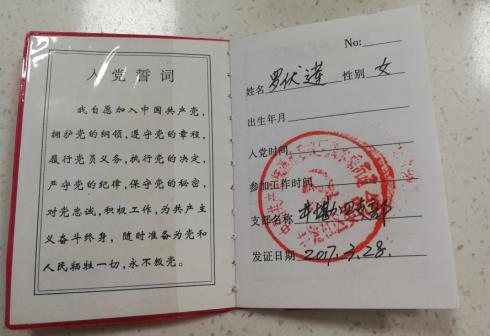 入党誓词
我自愿加入中国共产党，
拥护党的纲领，遵守党的章程，
履行党员义务，执行党的决定，
严守党的纪律，保守党的秘密，
对党忠诚，积极工作，为共产主
义奋斗终身，随时准备为党和
人民牺牲一切，永不叛党。
No:
姓名 罗伏莲 性别 女
出生年月
入党时间
参加工作时间
支部名称 支部
发证日期 2017.3.28.